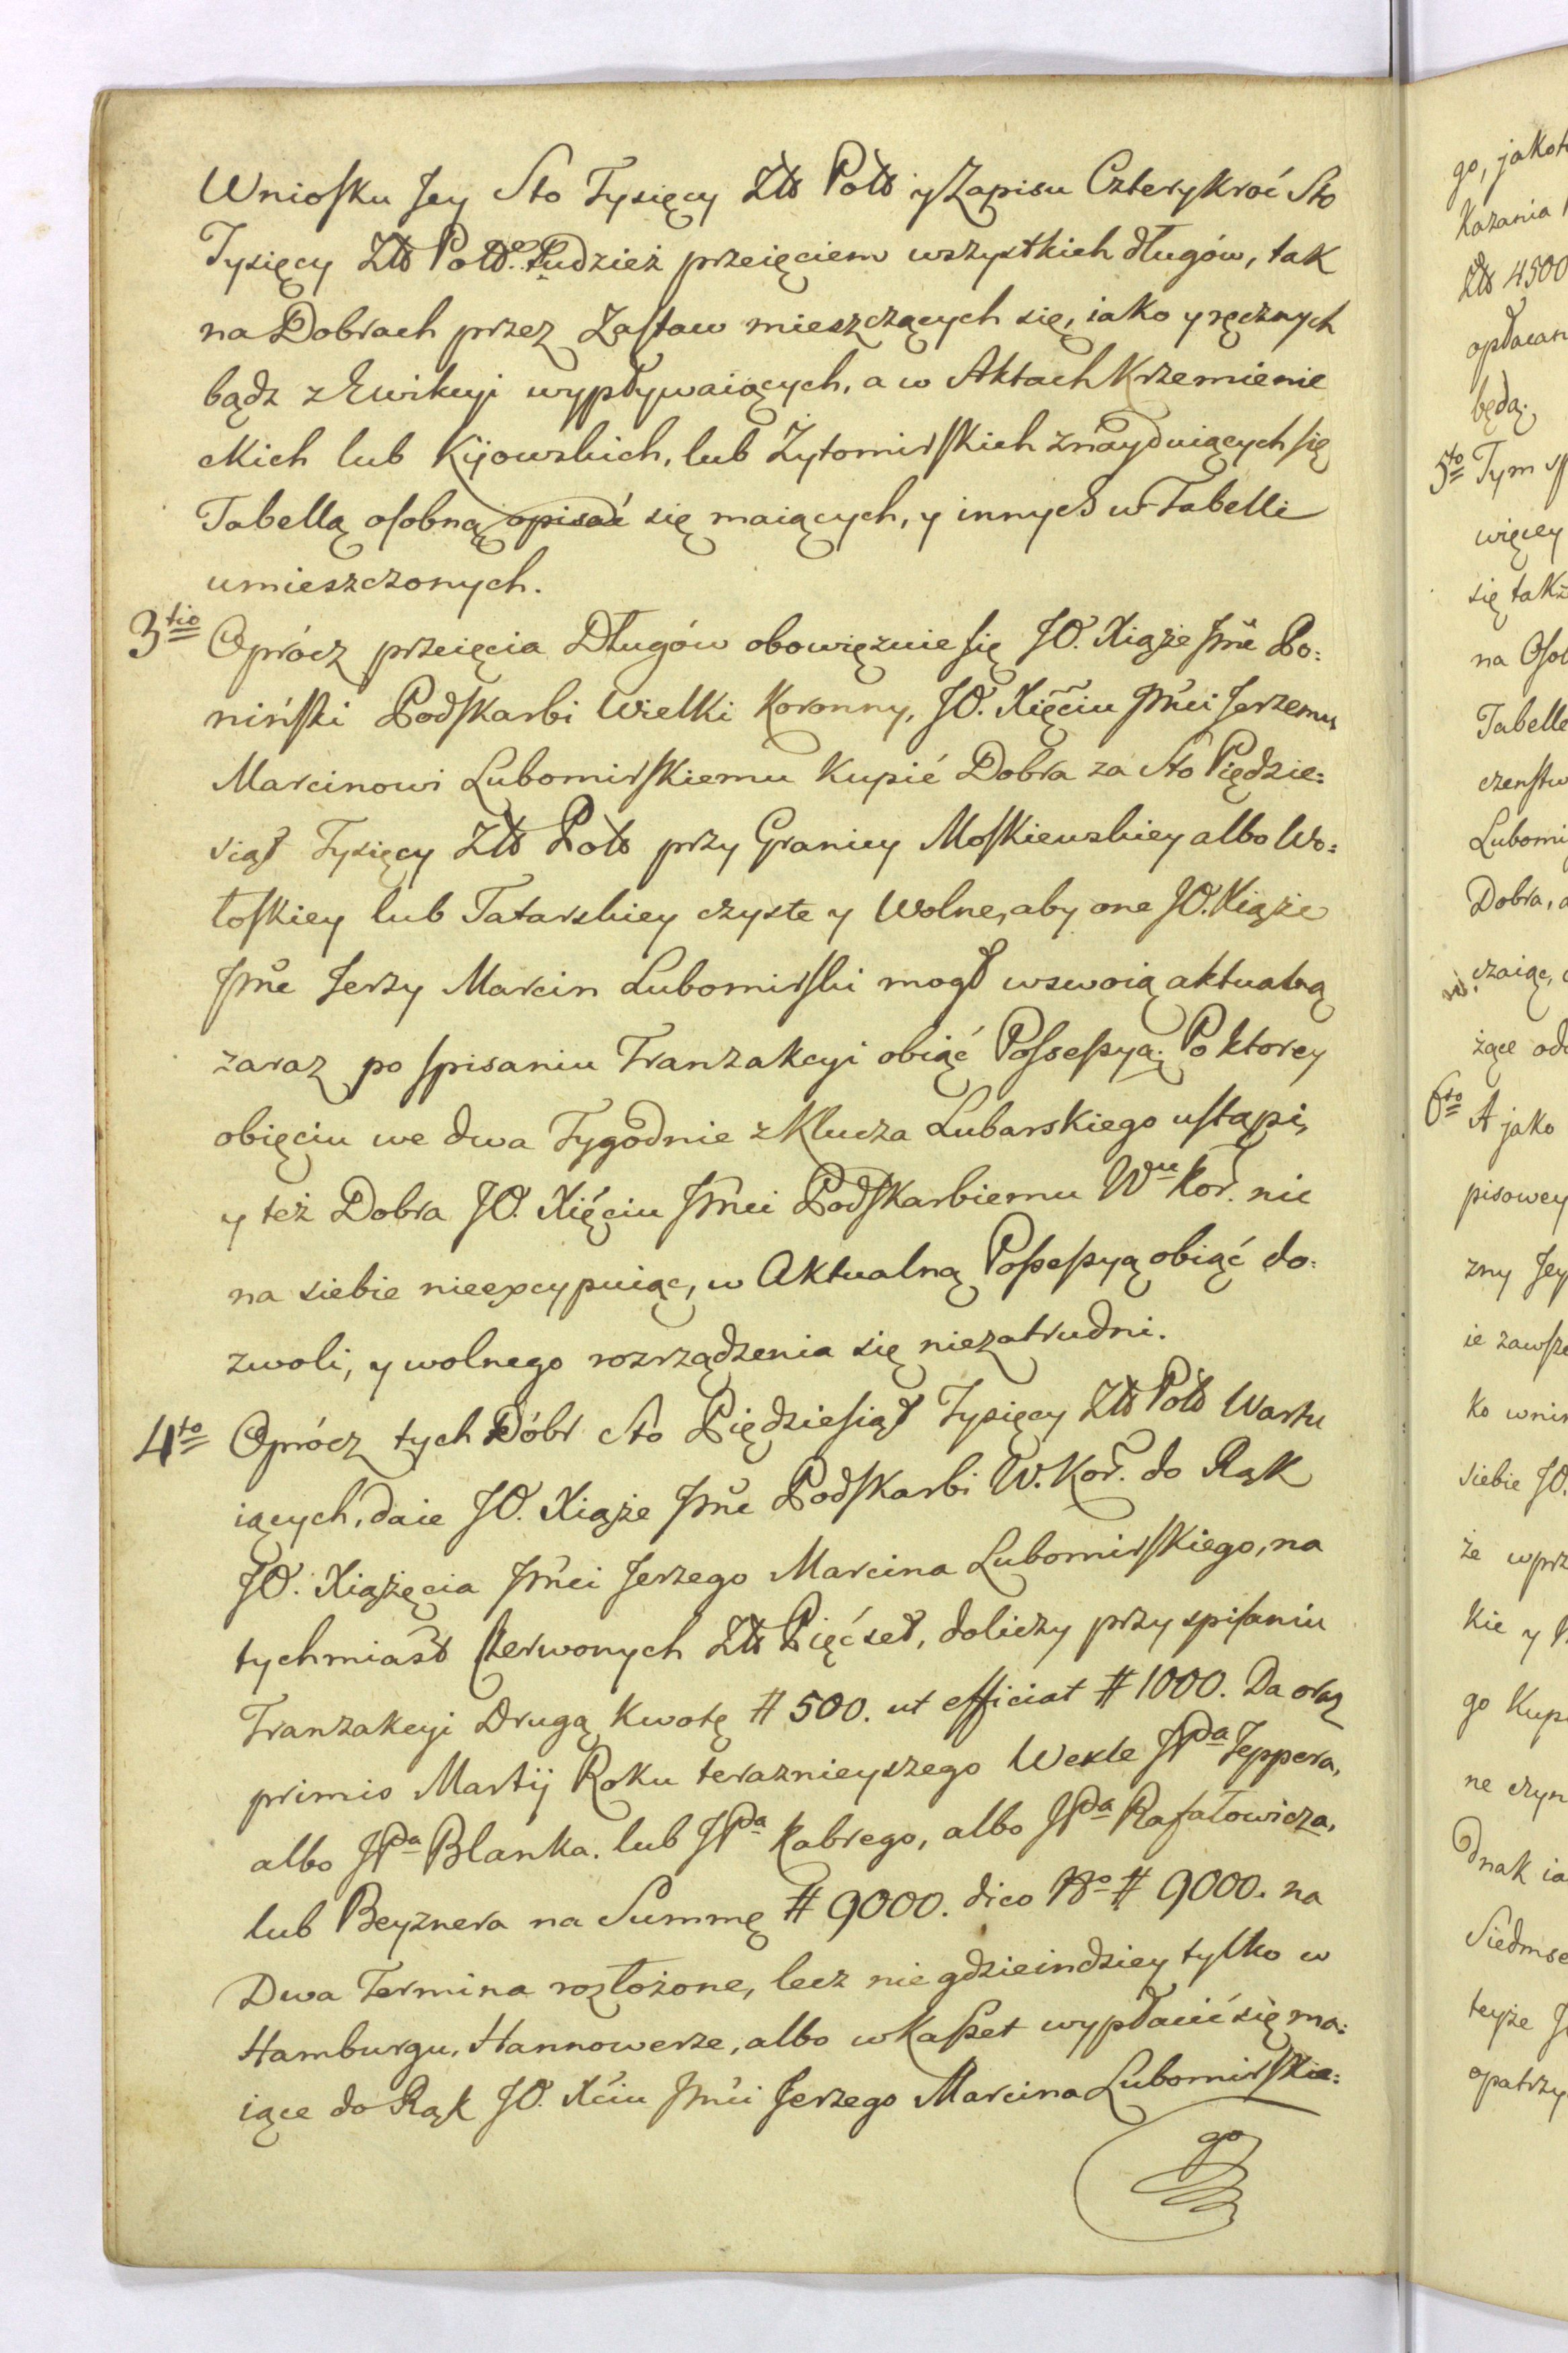 Wniosku Jey Sto Tysięcy Złł Poll y Zapisu Czterykroć Sto
Tysięcy Złł Poll. Tudzież przeięciem wszystkich długów, tak
na Dobrach przez Zastaw mieszczących się, iako y ręcznych
bądz z Ewikcyi wypływaiących, a w Aktach Krzemienie
ckich lub Kijowskich, lub Żytomirskich znayduiących się
Tabellą osobną opisać się maiących, y innych w Tabelli
umieszczonych.
3tio Oprócz przeięcia Długów obowięzuie się JO. Xiąże Jmć Po:
niński Podskarbi Wielki Koronny, JO. Xięciu Jmci Jerzemu
Marcinowi Lubomirskiemu Kupić Dobra za Sto Piędzie:
siąt Tysięcy Złł Poll przy Granicy Moskiewskiey albo Wo:
łoskiey lub Tatarskiey czyste y Wolne, aby one JO. Xiąże
Jmć Jerzy Marcin Lubomirski mogł w swoią aktualną
zaraz po spisaniu Tranzakcyi obiąć Possessyą. Po ktorey
obięciu we dwa Tygodnie z Klucza Lubarskiego ustąpi,
y też Dobra JO. Xięciu Jmci Podskarbiemu Wu Kor. nic
na siebie nieexcypuiąc, w Aktualną Possessyą obiąć do:
zwoli, y wolnego rozrządzenia się niezatrudni.
4to Oprócz tych Dóbr Sto Piędziesiąt Tysięcy Złł Poll Wartu
iących, daie JO. Xiąże Jmć Podskarbi W. Kor. do Rąk
JO. Xiążęcia Jmci Jerzego Marcina Lubomirskiego, na
tychmiast Czerwonych Złł Pięćset, doliczy przy spisaniu
Tranzakcyi Drugą Kwotę # 500. ut efficiat # 1000. Da oraz
primis Martij Roku teraznieyszego Wexle JPda Teppera,
albo JPda Blanka. lub JPda Kabrego, albo JPda Rafałowicza,
lub Beyznera na Summę # 9000. dico No # 9000. na
Dwa Termina rozłożone, lecz nie gdzieindziey tylko w
Hamburgu, Hannowerze, albo w Kasset wypłacić się ma:
iące do Rąk JO. Xciu Jmci Jerzego Marcina Lubomirskie:
go
go, jakoto
Kazania
Złł 4500
opłacan
będą.
5to Tym
więcey
się takż
na Osob
Tabelle
czenstw
Lubomi
Dobra,
czaiąc,
żące od
6to A jako
pisowey
zny Jey
ie zawsze
ko wnin
siebie JO.
że wprz
kie y
go Kup
ne czyn
dnak ia
Siedmse
teyże
opatrzy